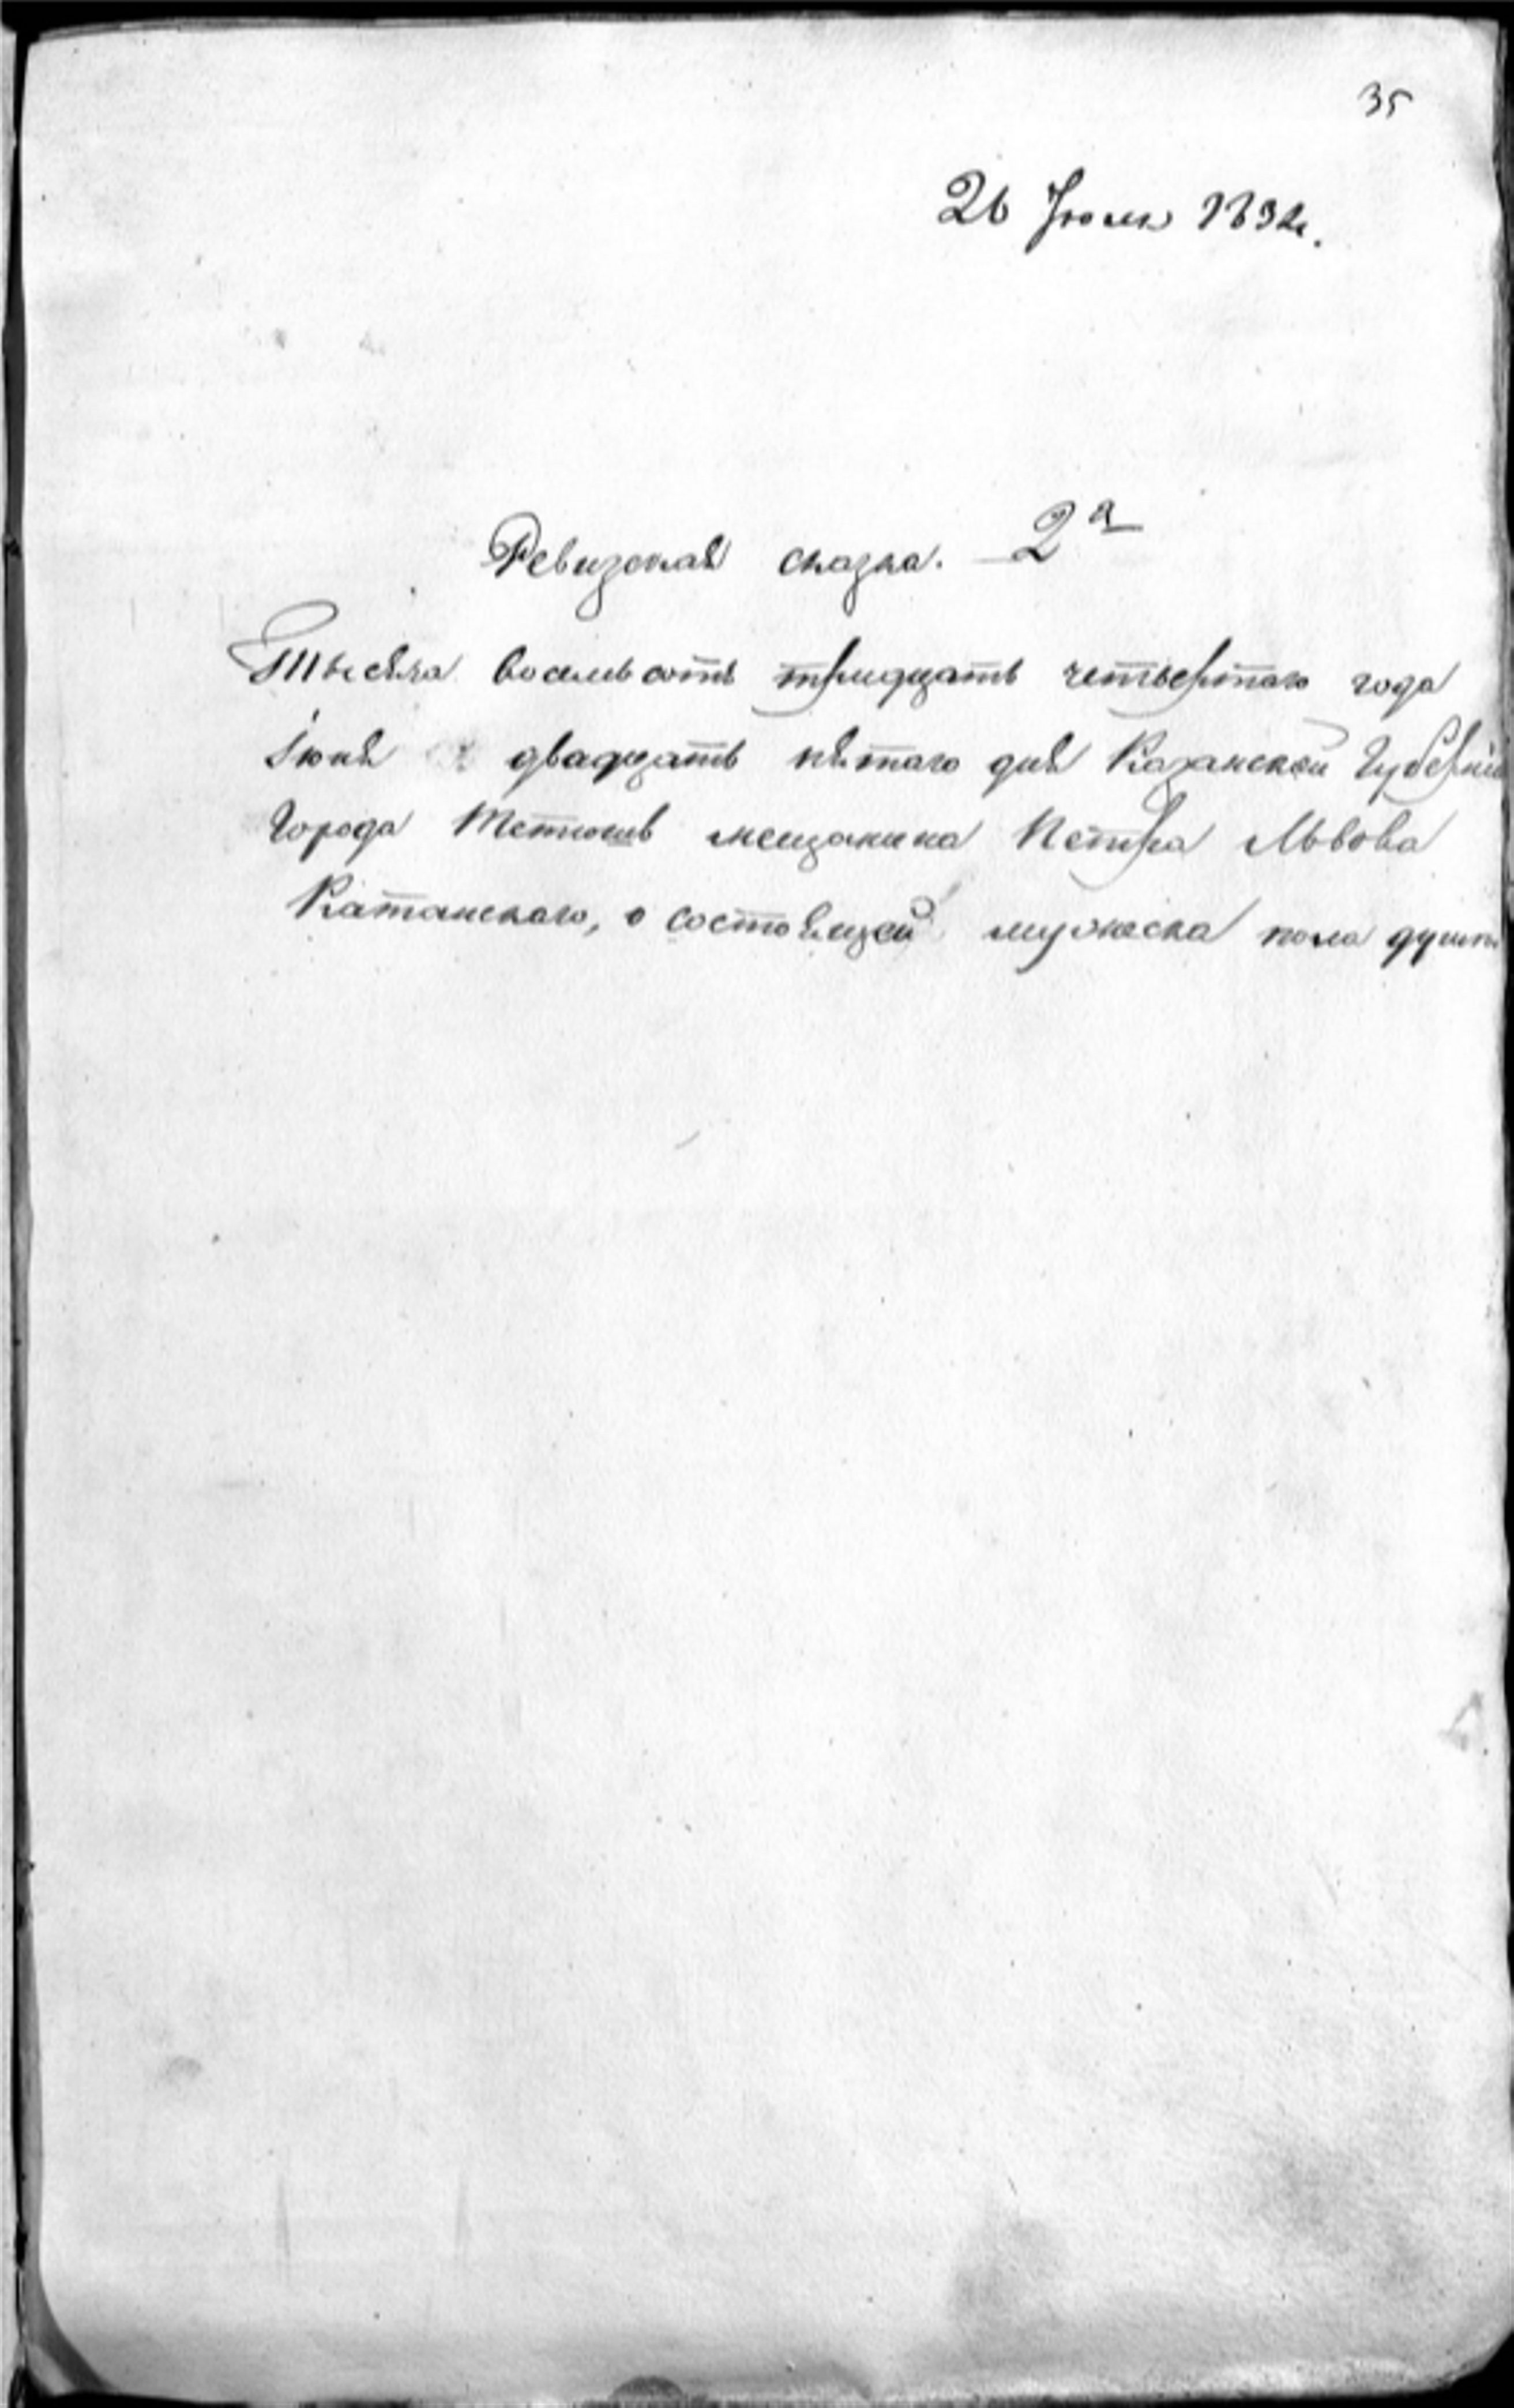 35
26 Июня 1834.
Ревизская сказка. 2я
Тысяча восемьсотъ тридцать четвертаго года
Іюня двадцать пятаго дня Казанской Губерніи
Города Тетюшъ мещанина Петра Львова
Катанскаго, о состоящей мужеска пола души